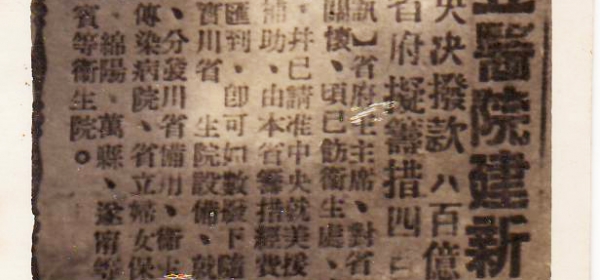 立醫院建新
央決撥款八百億
省府擬籌措四百
訊】省府王主席、對省
關懷、頃已飭衞生處、
、幷已請准中央就美援
補助、由本省籌措經費
匯到、卽可如數發下隨
實川省 生院設備、就
、分發川省備用、衞
傳染病院、省立婦女保
、綿陽、萬縣、遂甯等
賓等衞生院。